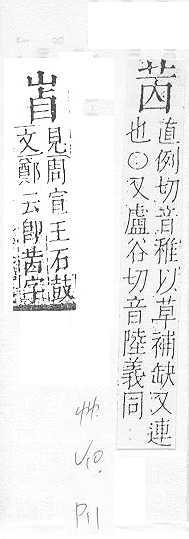 直例切音稚以草補缺又連
也○又盧谷切音陸義同
見周宣王石鼓
文鄭云卽字
艸
V10.
P11